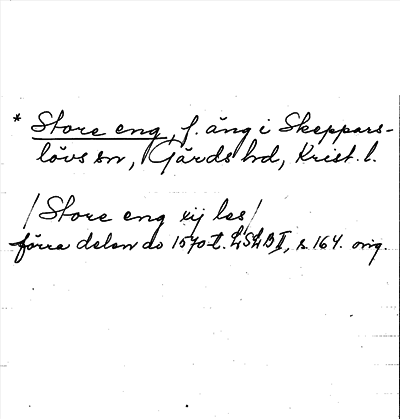 * Store eng, f. äng i Skeppars-
lövs sn, Gärds hd, Krist. l.
/Store eng xij les/
förra delen av 1570-t. LSLB II, s. 164. orig.